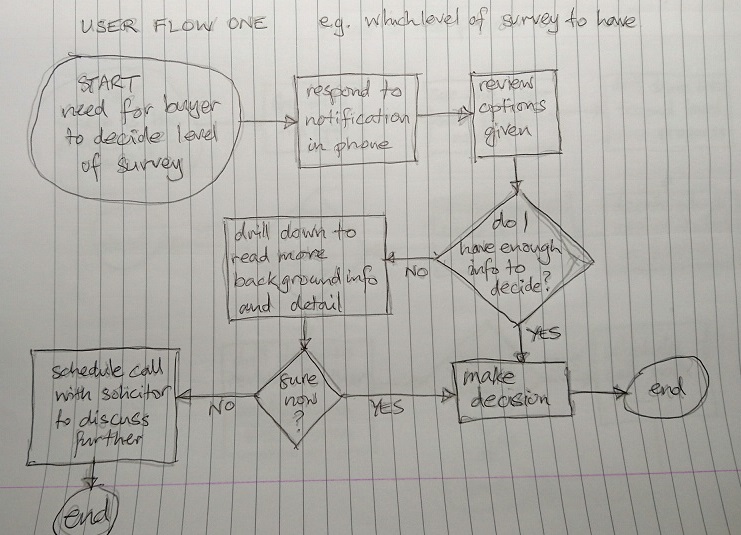 USER FLOW ONE e.g. which level of survey to have
START
need for buyer
to decide level
of survey
respond to
notification
in phone
review
options
given
do I
have enough
info to
decide?
NO
YES
drill down to
read more
background info
and detail
sure
now
?
NO
YES
schedule call
with solicitor
to discuss
further
make
decision
end
end